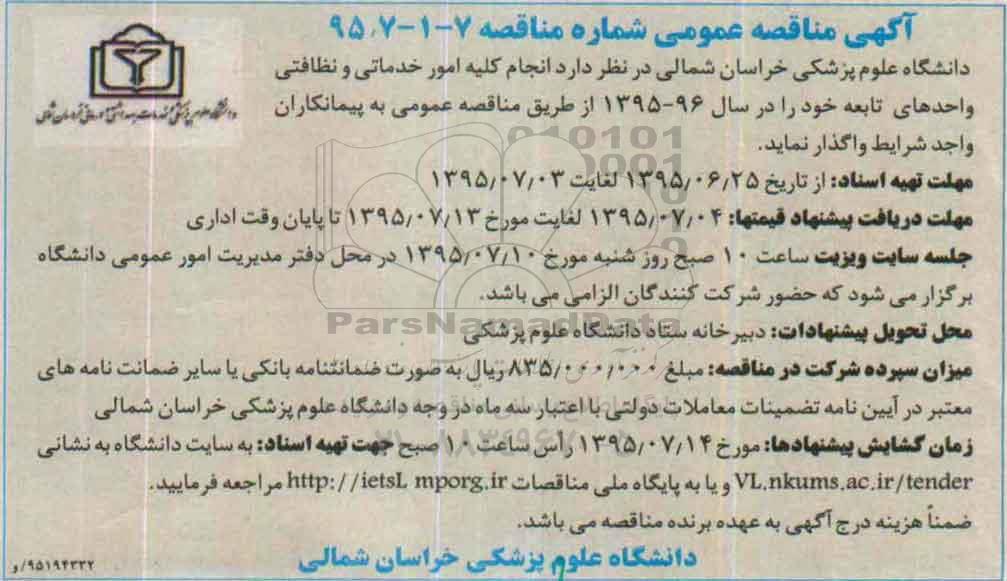 آگهی مناقصه عمومی شماره مناقصه ۷-۱-۹۵،۷
دانشگاه علوم پزشکی خراسان شمالی در نظر دارد انجام کلیه امور خدماتی و نظافتی
واحدهای تابعه خود را در سال ۹۶-۱۳۹۵ از طریق مناقصه عمومی به پیمانکاران
واجد شرایط واگذار نماید.
مهلت تهیه اسناد: از تاریخ ۱۳۹۵/۰۶/۲۵ لغایت ۱۳۹۵/۰۷/۰۳
مهلت دریافت پیشنهاد قیمتها: ۱۳۹۵/۰۷/۰۴ لغایت مورخ ۱۳۹۵/۰۷/۱۳ تا پایان وقت اداری
جلسه سایت ویزیت ساعت ۱۰ صبح روز شنبه مورخ ۱۳۹۵/۰۷/۱۰ در محل دفتر مدیریت امور عمومی دانشگاه
برگزار می شود که حضور شرکت کنندگان الزامی می باشد.
ParsNamadData
محل تحویل پیشنهادات: دبیرخانه ستاد دانشگاه علوم پزشکی
میزان سپرده شرکت در مناقصه: مبلغ ۸۳۵/۰۰۰/۰۰۰ ریال به صورت ضمانتنامه بانکی یا سایر ضمانت نامه های
معتبر در آیین نامه تضمینات معاملات دولتی با اعتبار سه ماه در وجه دانشگاه علوم پزشکی خراسان شمالی
زمان گشایش پیشنهادها: مورخ ۱۳۹۵/۰۷/۱۴ رأس ساعت ۱۰ صبح جهت تهیه اسناد: به سایت دانشگاه به نشانی
VL.nkums.ac.ir/tender و یا به پایگاه ملی مناقصات http://ietsL mporg.ir مراجعه فرمایید.
ضمناً هزینه درج آگهی به عهده برنده مناقصه می باشد.
دانشگاه علوم پزشکی خراسان شمالی
۹۵۱۹۴۳۳۲/و